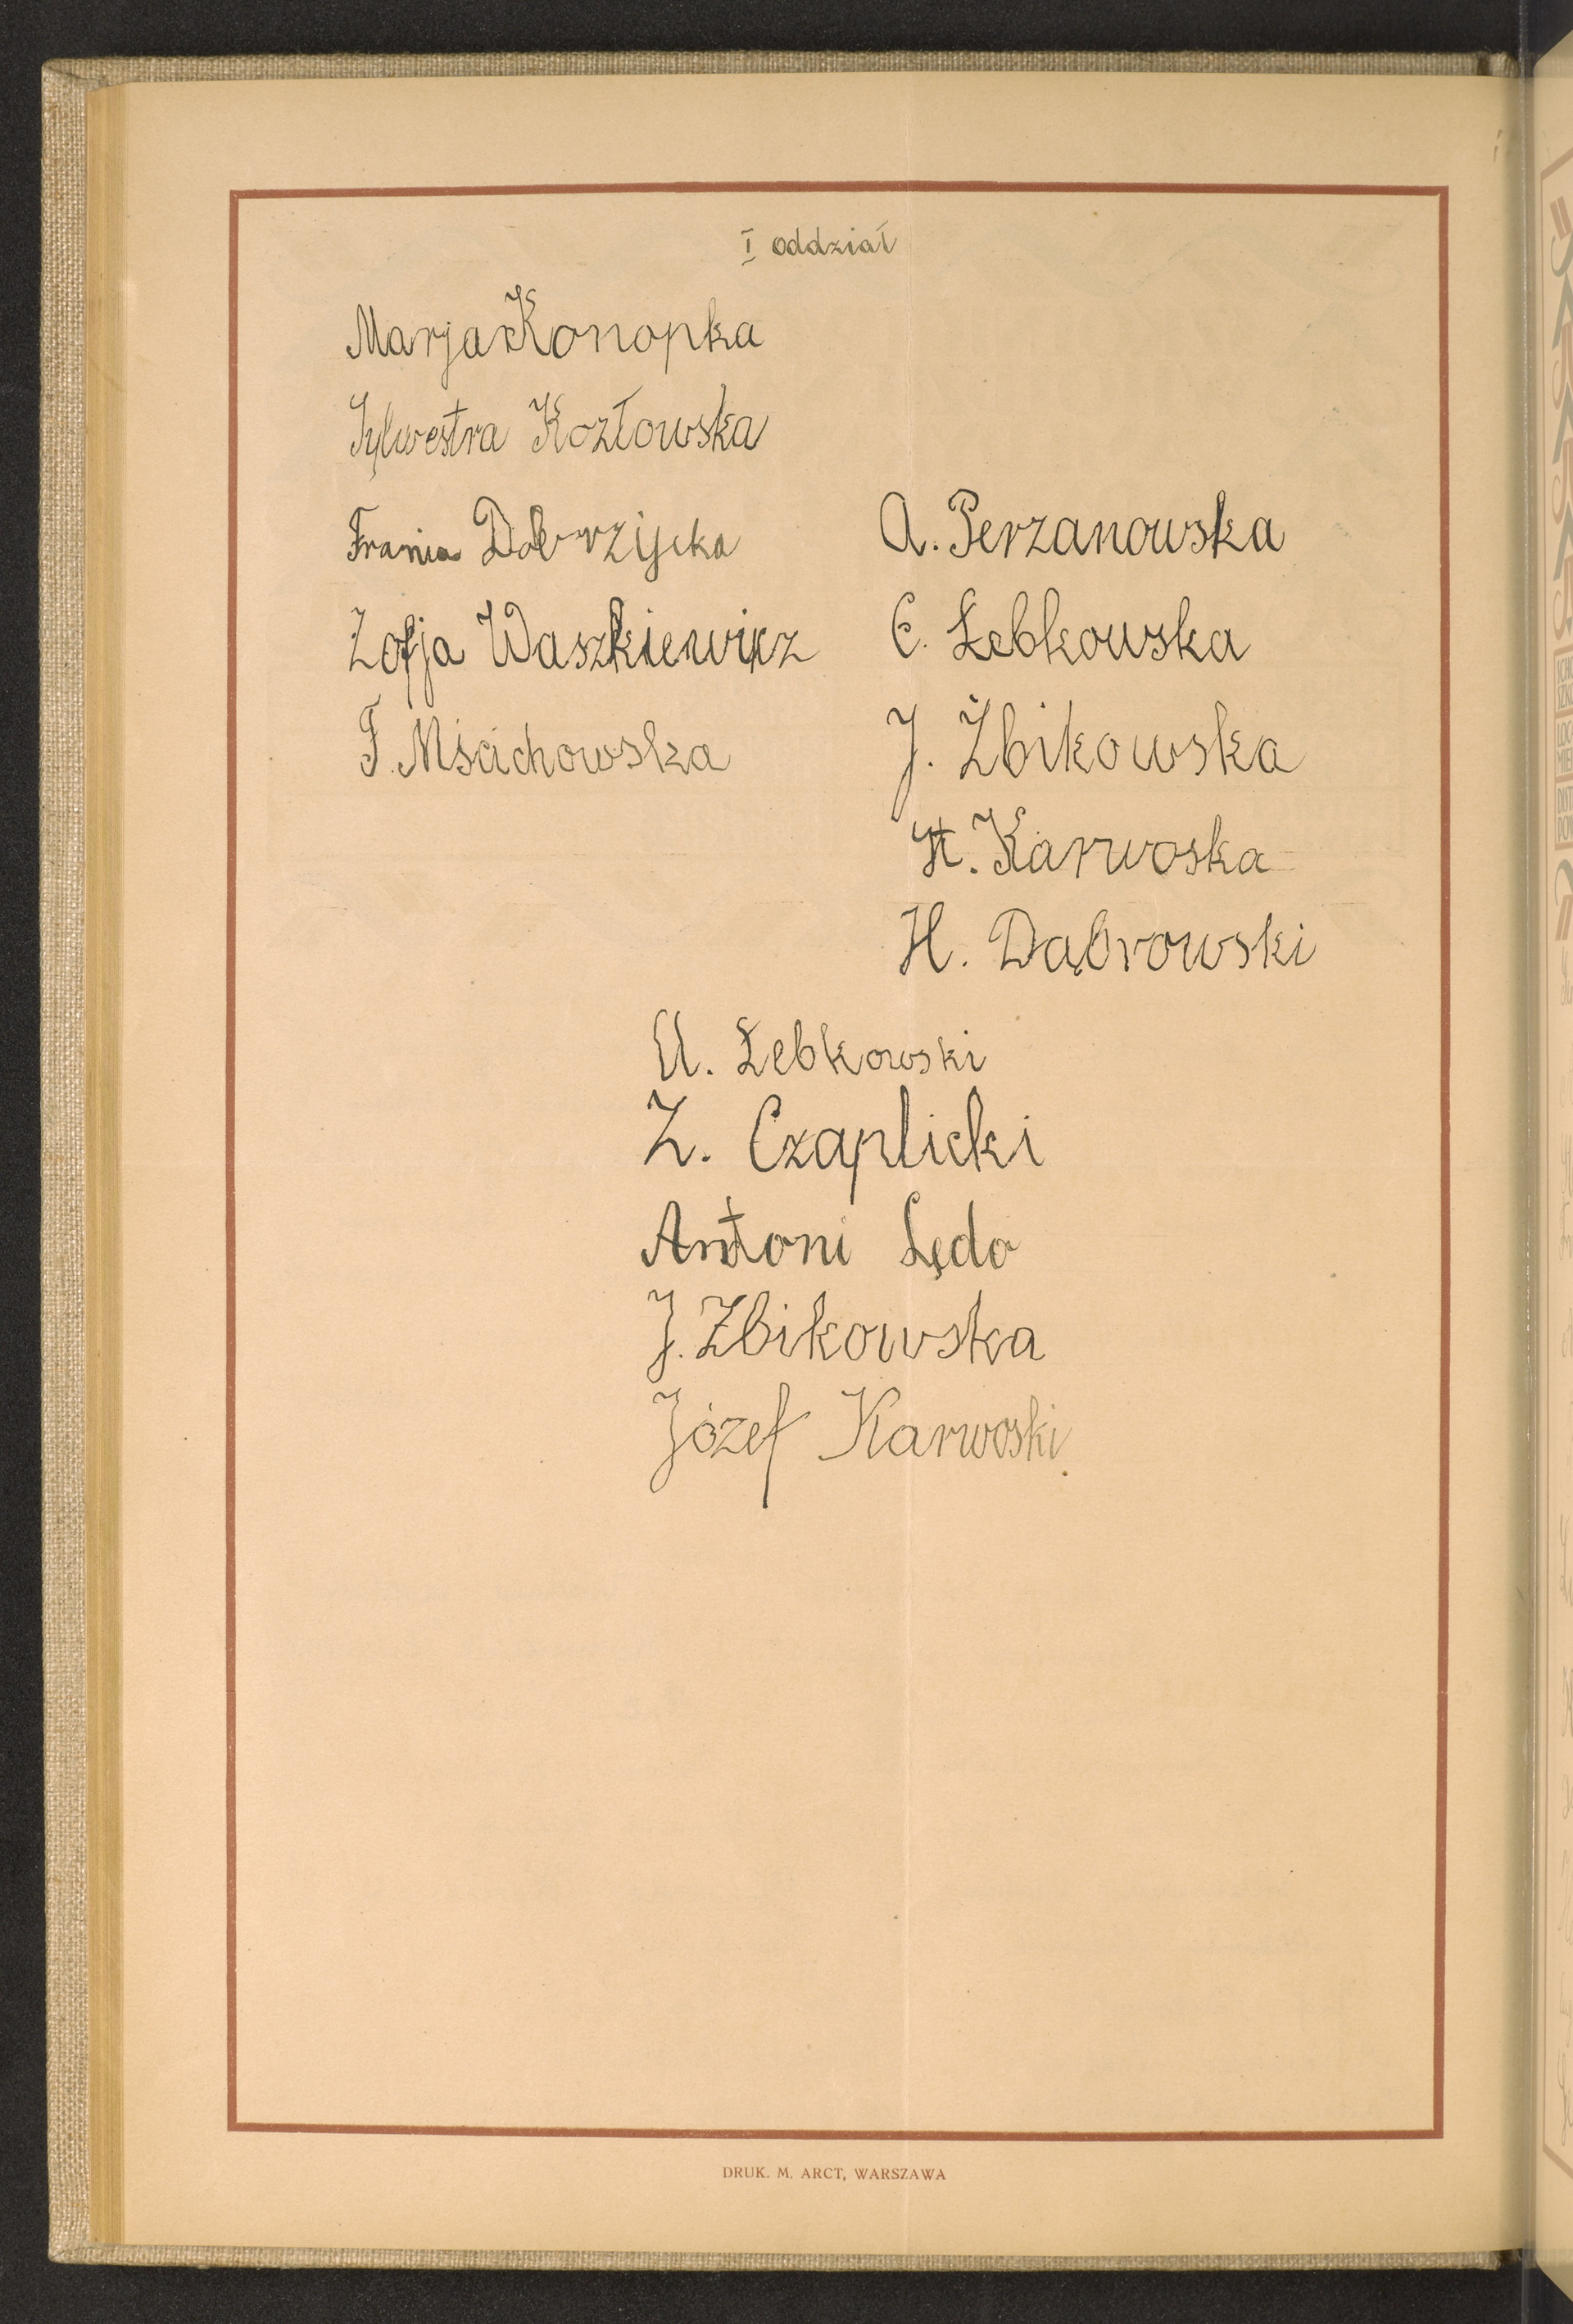 I oddział
Marja Konopka
Sylwestra Kozłowska
Frania Dobrzyjcka
Zofja Waszkiewicz
F. Mścichowska
A. Perzanowska
E. Łebkowska
J. Żbikowska
St. Karwoska
H. Dąbrowski
A. Łebkowski
Z. Czaplicki
Antoni Lędo
J. Zbikowska
Józef Karwoski
DRUK. M. ARCT, WARSZAWA